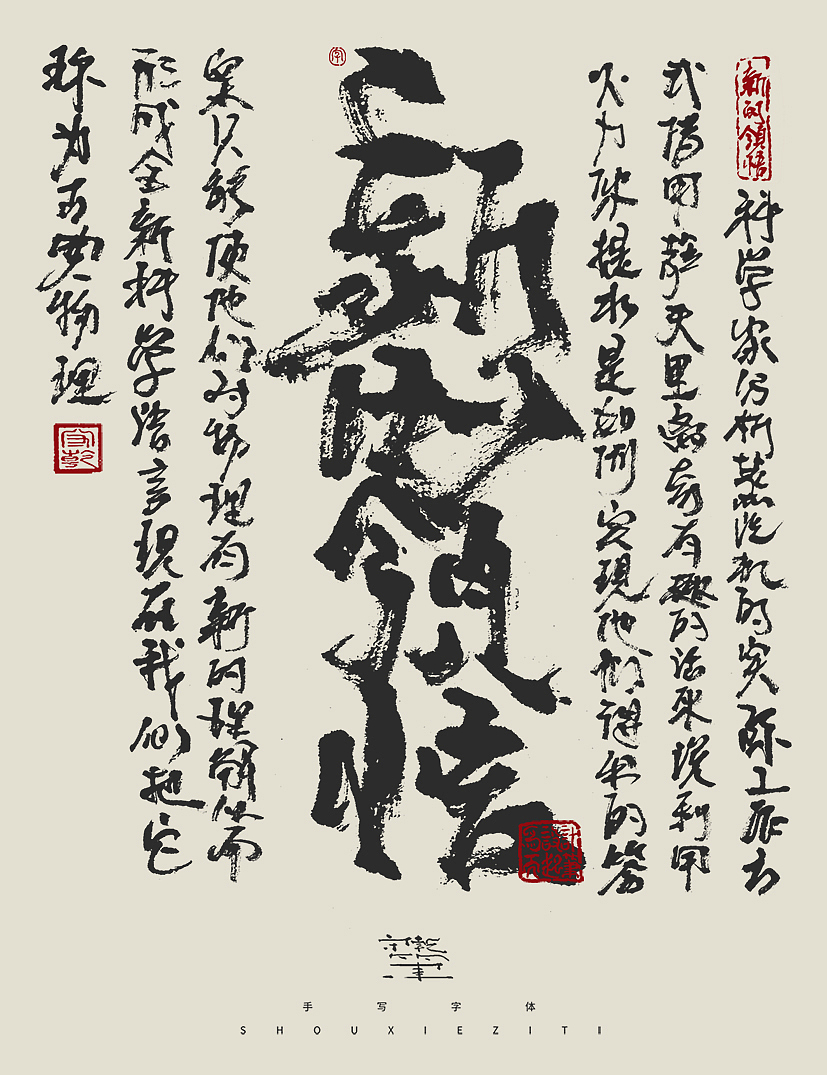 新的領悟
科学家分析蒸汽机的实际工作方
式借用有趣的话来说利用
火力来提水是如何实现他们得出的答
新的領悟
案只能使他们对物理有新的理解从而
形成全新科学语言现在我们把它
称为古典物理
手写字体
SHOUXIEZITI